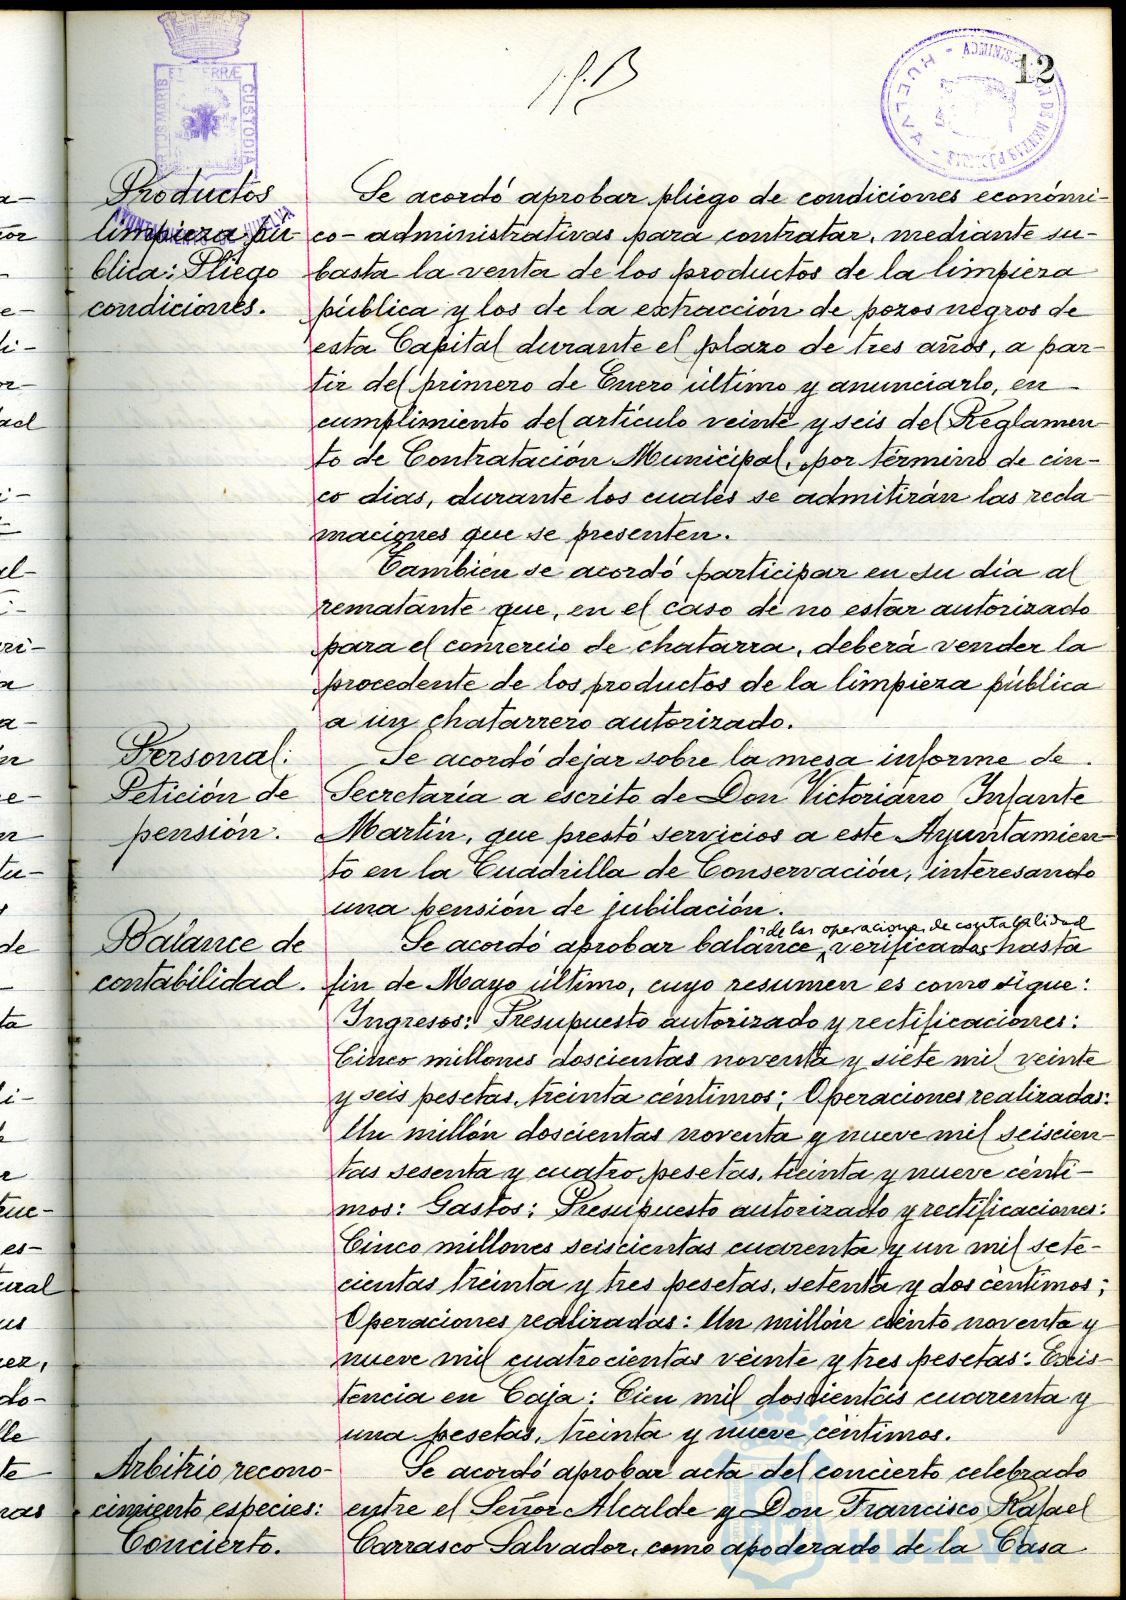 12
Productos
limpieza pú-
blica: Pliego
condiciones.
Se acordó aprobar pliego de condiciones económi-
co-administrativas para contratar, mediante su-
basta la venta de los productos de la limpieza
pública y los de la extracción de pozos negros de
esta Capital durante el plazo de tres años, a par-
tir del primero de Enero último y anunciarlo, en
cumplimiento del artículo veinte y seis del Reglamen-
to de Contratación Municipal, por término de cin-
co dias, durante los cuales se admitirán las recla-
maciones que se presenten.
También se acordó participar en su dia al
rematante que, en el caso de no estar autorizado
para el comercio de chatarra, deberá vender la
procedente de los productos de la limpieza pública
a un chatarrero autorizado.
Personal:
Petición de
pensión.
Se acordó dejar sobre la mesa informe de
Secretaría a escrito de Don Victoriano Infante
Martín, que prestó servicios a este Ayuntamien-
to en la Cuadrilla de Conservación, interesando
una pensión de jubilación.
Balance de
contabilidad.
de las operaciones de contabilidad
Se acordó aprobar balance verificadas hasta
fin de Mayo último, cuyo resumen es como sigue:
Ingresos: Presupuesto autorizado y rectificaciones:
Cinco millones doscientas noventa y siete mil veinte
y seis pesetas, treinta céntimos; Operaciones realizadas:
Un millón doscientas noventa y nueve mil seiscien-
tas sesenta y cuatro pesetas, treinta y nueve cénti-
mos: Gastos: Presupuesto autorizado y rectificaciones:
Cinco millones seiscientas cuarenta y un mil sete-
cientas treinta y tres pesetas, setenta y dos céntimos;
Operaciones realizadas: Un millón ciento noventa y
nueve mil cuatrocientas veinte y tres pesetas: Exis-
tencia en Caja: Cien mil doscientas cuarenta y
una pesetas, treinta y nueve céntimos.
Arbitrio recono-
cimiento especies:
Concierto.
Se acordó aprobar acta del concierto celebrado
entre el Señor Alcalde y Don Francisco Rafael
Carrasco Salvador, como apoderado de la Casa
HUELVA